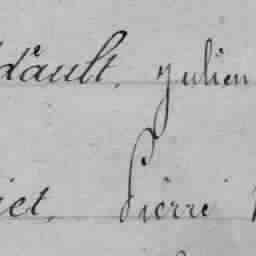 dault, Julien
iet, Pierre